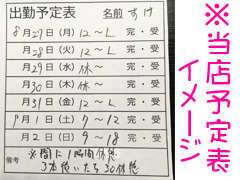 出勤予定表 名前 すけ
8月27日(月) 12～L 完・受
月28日(火) 12～L 完・受
月29日(水) 休～ 完・受
月30日(木) 休～ 完・受
月31日(金) 12～L 完・受
9月1日(土) 9～12 完・受
月2日(日) 9～18 完・受
備考
※間に1時間休憩
3本続いたら30休憩
※当店予定表
イメージ